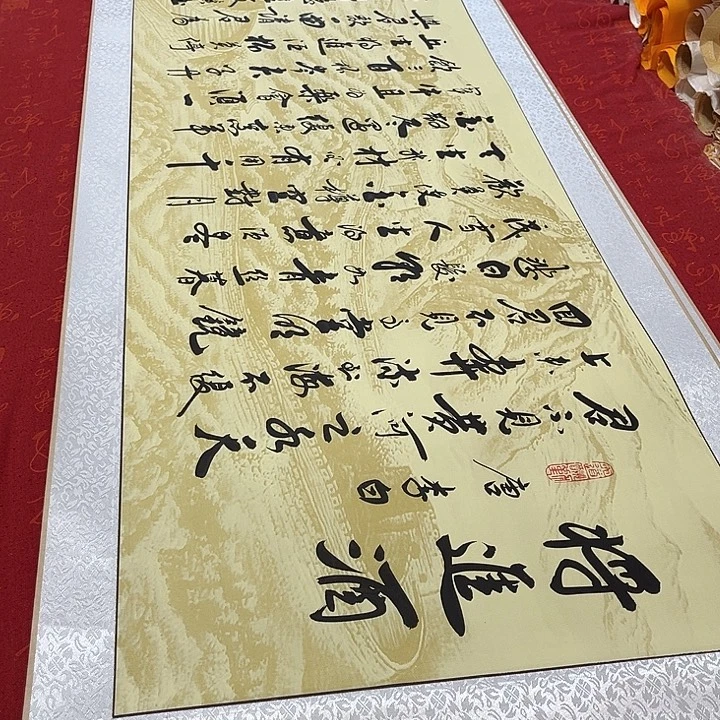 将進酒
唐李白
君不見黄河之水天
上来奔流到海不復
回君不見高堂明鏡
悲白髮朝如青丝暮
成雪人生得意須盡
歡莫使金樽空對月
天生我材必有用千
金散盡還復来烹羊
宰牛且為樂會須一
飲三百杯岑夫子丹
丘生将進酒杯莫停
與君歌一曲請君為